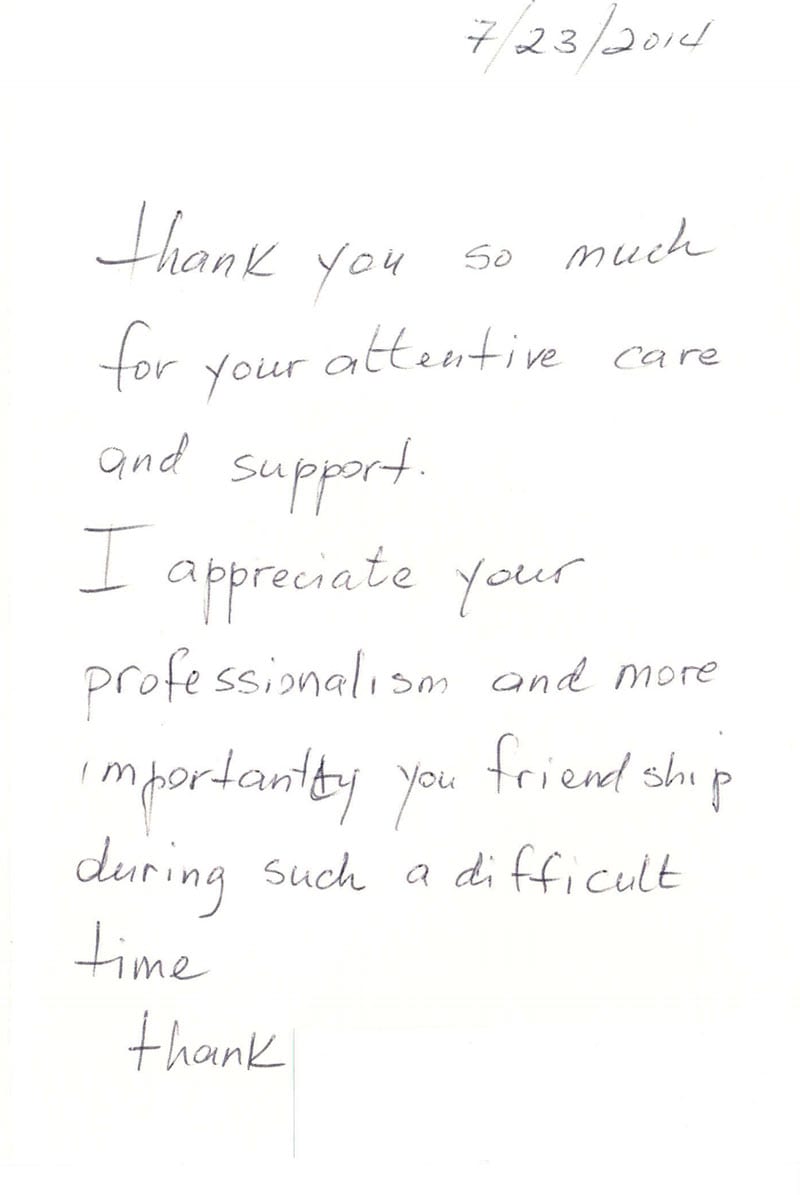 7/23/2014
thank you so much
for your attentive care
and support.
I appreciate your
professionalism and more
importantly you friendship
during such a difficult
time
thank